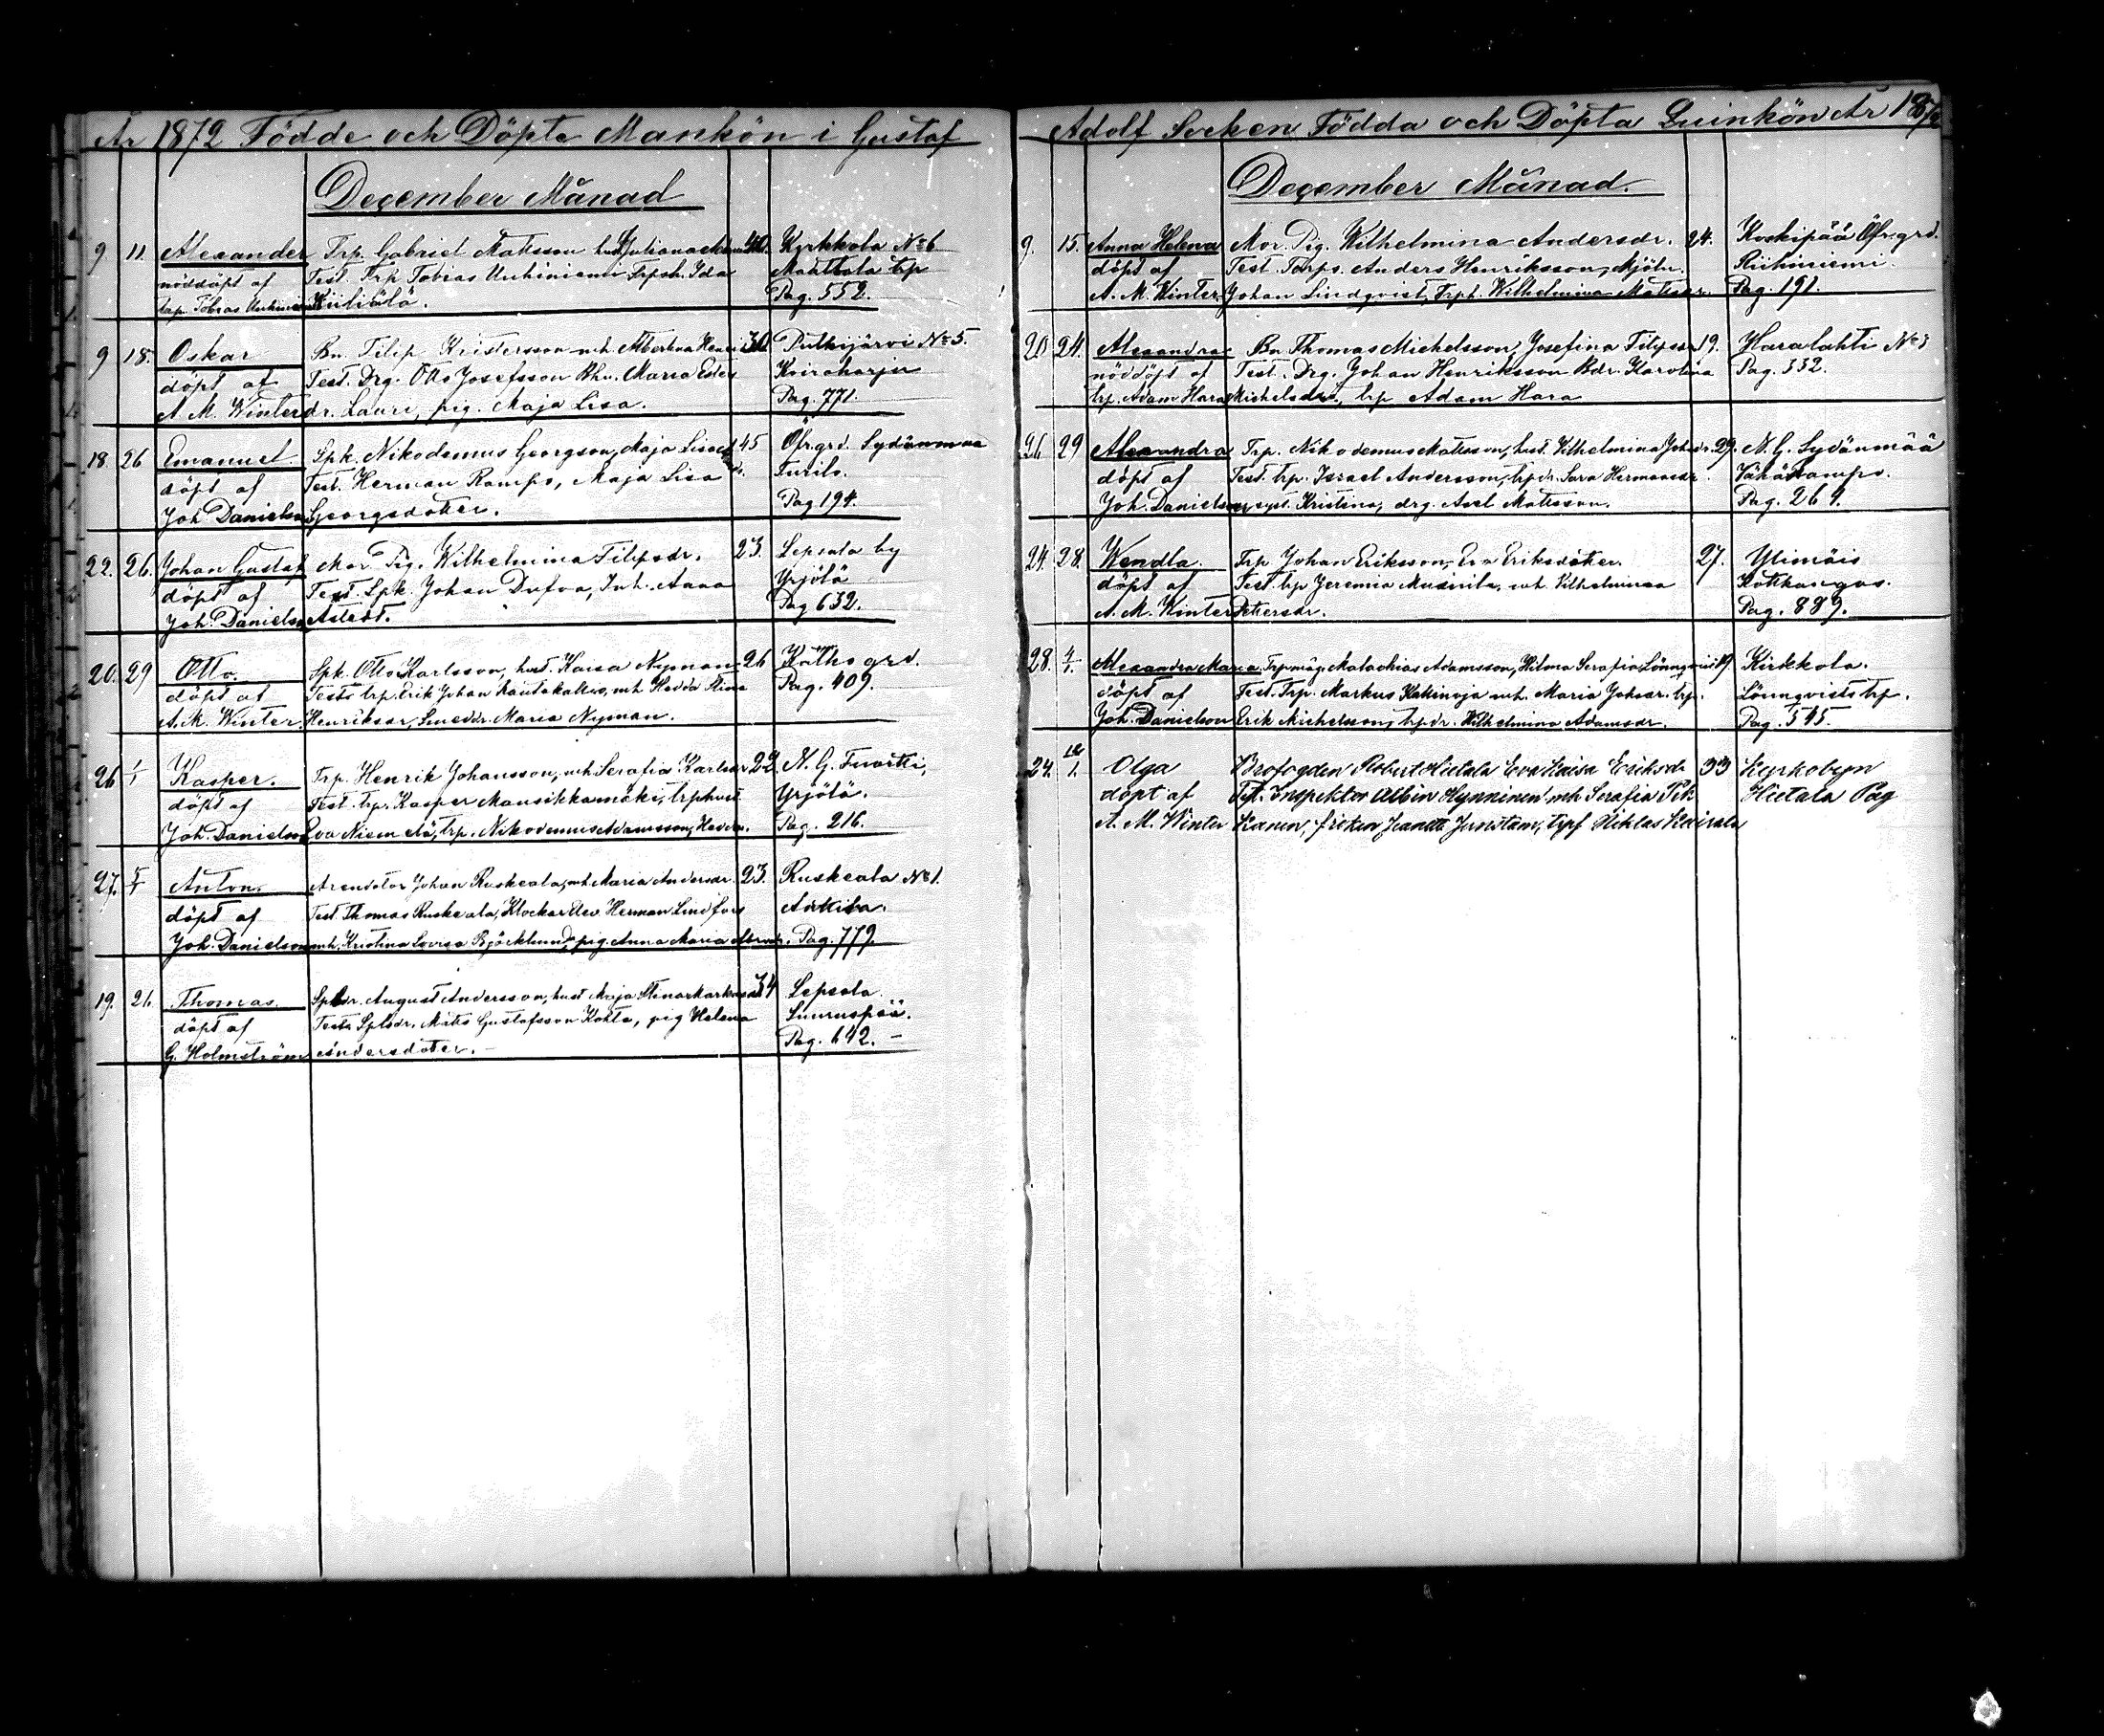 År 1872 Födde och Döpte Mankön i Gustaf
December Månad
9 11. Alexander Trp. Gabriel Matsson hust. Juliana 40. Kyrkkola No 6
nöddöpt af Test. Trp. Tobias Urhiniemi Trpsh. Ida Mahttala trp
trp. Tobias Kiiliälä. Pag. 552.
9 18. Oskar Bn. Filip Kristersson och Albertina 30. Putkijärvi No 5.
döpt af Test. Drg. Otto Josefsson Bhu. Maria Ester Koiraharju
A. M. Winter dr. Lauri, pig. Maja Lisa. Pag. 771.
18. 26 Emanuel Spk. Nikodemus Georgson, Maja Lisa 45 Öfr.grd. Sydänmaa
döpt af Test. Herman Rampo, Maja Lisa Turilo.
Joh. Danielson Georgsdotter. Pag 194.
22. 26. Johan Gustaf Mor. Pig. Wilhelmina Filipsdr. 23. Lepsala by
döpt af Test. Spk. Johan Dufva, Inh. Anna Yrjölä
Joh. Danielson Astedt. Pag 632.
20. 29 Otto. Spk. Otto Karlsson, hust. Kaisa Nyman 26 Katho grd.
döpt af Test. trp. Erik Johan Rautakallio, och Hedda Stina Pag. 409.
A. M. Winter. Henriksdr, Smeddr. Maria Nyman.
26 1/1 Kasper. Trp. Henrik Johansson, och Serafia Karlsdr 22. N. G. Tuortti,
döpt af Test. trp. Kasper Mansikkamäki, trphust Yrjölä.
Joh. Danielson Eva Niemelä, trp. Nikodemus Adamsson, Pag. 216.
27. Anton. Arendator Johan Ruskeala, och Maria Andersdr. 23. Ruskeala No 1.
döpt af Test. Thomas Ruskeala, Klockar Elev Herman Lindfors Anttila.
Joh. Danielson och Kristina Lovisa Björklund, pig. Anna Maria Pag. 779.
19. 26. Thomas. August Andersson, hust Maja Stina 34 Lepsala.
döpt af Test. Matts Gustafsson Kokla, pig Helena Suuruspää.
G. Holmström Andersdotter. – Pag. 642. –
Adolf Socken Födda och Döpta Quinkön År 1872
December Månad.
9. 15. Anna Helena Mor. Pig. Wilhelmina Andersdr. 24. Koskipää Öfr.grd.
döpt af Test. Torps. Anders Henriksson, Mjöln. Riihiniemi.
A. M. Winter. Johan Lindqvist, Trph. Wilhelmina Mattsdr. Pag. 191.
20 24. Alexandra Bn. Thomas Michelsson, Josefina Filipsdr 19. Haralahti No 3
nöddöpt af Test. Drg. Johan Henriksson Bdr. Karolina Pag. 332.
trp. Adam Hara Michelsdr, trp Adam Hara
26 29 Alexandra Trp. Nikodemus Matsson, hust. Wilhelmina Johsdr. 29. N. G. Sydänmää
döpt af Test. trp. Israel Andersson, trp.dr. Sara Hermansdr. Vähärampo.
Joh. Danielson, syst. Kristina, drg. Axel Matsson. Pag. 269.
24. 28. Wendla. Trp. Johan Eriksson, Eva Eriksdoter. 27. Ylimäis
döpt af Test. trp Jeremia och Vilhelmina Kotkangas.
A. M. Winter Petersdr. Pag. 889.
28. 4/1. Alexandra Maria, Trp.måg. Malachias Adamsson, Hilma Serafia Lönnqvist 19. Kirkkola.
döpt af Test. Trp. Markus och. Maria Johsdr. trp. Lönnqvists trp.
Joh. Danielson Erik Michelsson, trp.dr. Wilhelmina Adamsdr. Pag. 545.
24. 12/1. Olga Brofogden Robert Hietala Eva Kaisa Eriksdr 33 Kyrkobyn
döpt af Test. Inspektor Albin Hynninen och Serafia Pik Hietala Pag
A. M. Winter Kanen, fröken Jeanette trpf Niklas